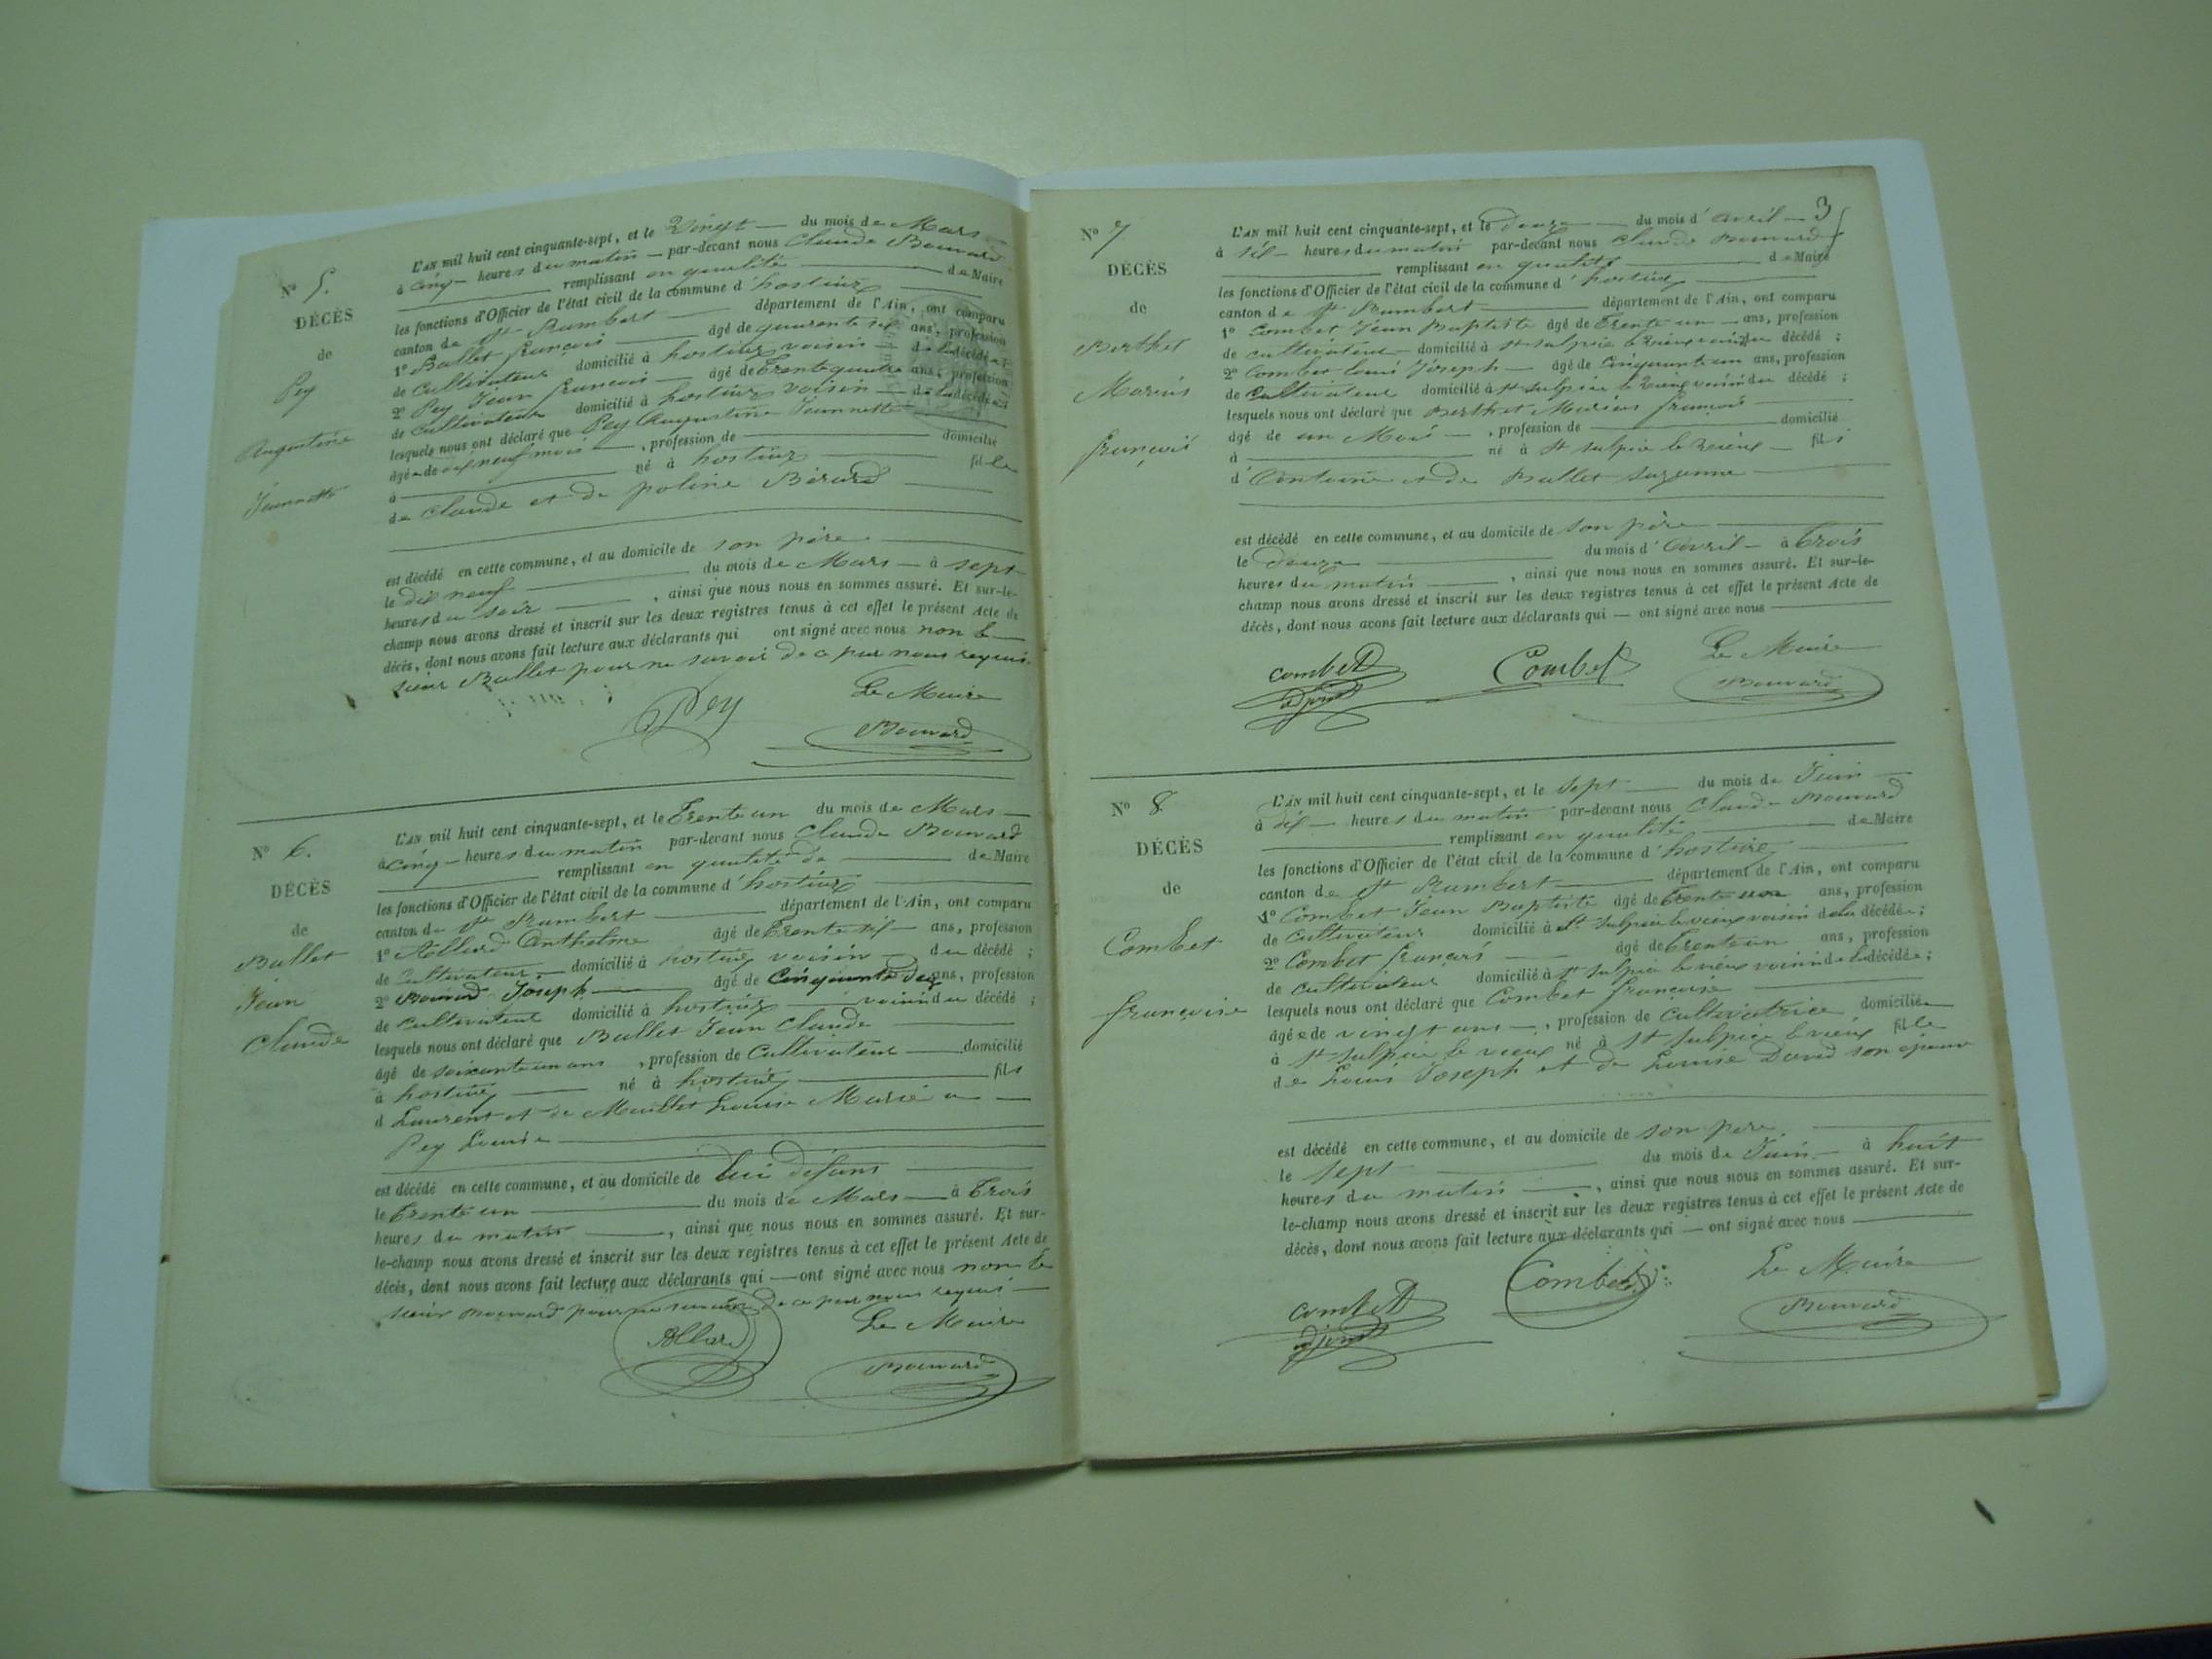 N° 5.
DÉCÈS
de
Pey
Augustine
Jeannette
L'AN mil huit cent cinquante-sept, et le Vingt du mois de Mars
à cinq heures du matin par-devant nous Claude Bouvard
remplissant en qualité de Maire
les fonctions d'Officier de l'état civil de la commune d'hostiaz
canton de St Rambert département de l'Ain, ont comparu
1° Ballet françois âgé de quarente six ans, profession
de Cultivateur domicilié à hostiaz voisin de la décédée ;
2° Pey Jean francois âgé de Trente quatre ans, profession
de cultivateur domicilié à hostiaz voisin de la décédée ;
lesquels nous ont déclaré que Pey Augustine Jeannette
âgée de dix neuf mois, profession de domicilié
à né à hostiaz fille
de Claude et de poline Bérard
est décédé en cette commune, et au domicile de son père
le dix neuf du mois de Mars à sept
heures du soir, ainsi que nous nous en sommes assuré. Et sur-le-
champ nous avons dressé et inscrit sur les deux registres tenus à cet effet le présent Acte de
décès, dont nous avons fait lecture aux déclarants qui ont signé avec nous non le
sieur Ballet pour ne savoir de ce par nous requis.
Pey
Le Maire
Bouvard
N° 6.
DÉCÈS
de
Ballet
Jean
Claude
L'AN mil huit cent cinquante-sept, et le Trente un du mois de Mars
à cinq heures du matin par-devant nous Claude Bouvard
remplissant en qualité de de Maire
les fonctions d'Officier de l'état civil de la commune d'hostiaz
canton de St Rambert département de l'Ain, ont comparu
1° Allard Anthelme âgé de Trente six ans, profession
de Cultivateur, domicilié à hostiaz voisin du décédé ;
2° Bouvard Joseph âgé de Cinquante deux ans, profession
de Cultivateur domicilié à hostiaz voisin du décédé ;
lesquels nous ont déclaré que Ballet Jean Claude
âgé de soixante un ans, profession de Cultivateur domicilié
à hostiaz né à hostiaz fils
d Laurent et de Maillet Louise Marie
Pey Louise
est décédé en cette commune, et au domicile de lui
le Trente un du mois de Mars à Trois
heures du matin, ainsi que nous nous en sommes assuré. Et sur-
le-champ nous avons dressé et inscrit sur les deux registres tenus à cet effet le présent Acte de
décès, dont nous avons fait lecture aux déclarants qui ont signé avec nous non le
sieur Bouvard pour ne savoir de ce par nous requis
Allard
Le Maire
Bouvard
3
N° 7
DÉCÈS
de
Berthet
Marius
françois
L'AN mil huit cent cinquante-sept, et le douze du mois d'avril
à six heures du matin par-devant nous Claude Bouvard
remplissant en qualité de Maire
les fonctions d'Officier de l'état civil de la commune d'hostiaz
canton de St Rambert département de l'Ain, ont comparu
1° Combet Jean Baptiste âgé de Trente un ans, profession
de cultivateur domicilié à St sulpice le vieux voisin du décédé ;
2° Combet Louis Joseph âgé de Cinquante un ans, profession
de Cultivateur domicilié à St sulpice le vieux voisin du décédé ;
lesquels nous ont déclaré que Berthet Marius françois
âgé de un Mois, profession de domicilié
à né à St sulpice le vieux fils
d'Antoine et de Ballet Suzanne
est décédé en cette commune, et au domicile de son père
le douze du mois d'Avril à Trois
heures du matin, ainsi que nous nous en sommes assuré. Et sur-le-
champ nous avons dressé et inscrit sur les deux registres tenus à cet effet le présent Acte de
décès, dont nous avons fait lecture aux déclarants qui — ont signé avec nous
Combet
adjoint
Combet
Le Maire
Bouvard
N° 8
DÉCÈS
de
Combet
françoise
L'AN mil huit cent cinquante-sept, et le sept du mois de Juin
à dix heures du matin par-devant nous Claude Bouvard
remplissant en qualité de Maire
les fonctions d'Officier de l'état civil de la commune d'hostiaz
canton de St Rambert département de l'Ain, ont comparu
1° Combet Jean Baptiste âgé de Trente un ans, profession
de Cultivateur domicilié à St Sulpice le vieux voisin de la décédée ;
2° Combet françois âgé de Trente un ans, profession
de Cultivateur domicilié à St sulpice le vieux voisin de la décédée ;
lesquels nous ont déclaré que Combet françoise
âgée de vingt ans, profession de Cultivatrice domiciliée
à St sulpice le vieux né à St sulpice le vieux fille
de Louis Joseph et de Louise David son épouse
est décédé en cette commune, et au domicile de son père
le sept du mois de Juin à huit
heures du matin, ainsi que nous nous en sommes assuré. Et sur-
le-champ nous avons dressé et inscrit sur les deux registres tenus à cet effet le présent Acte de
décès, dont nous avons fait lecture aux déclarants qui — ont signé avec nous
Combet
adjoint
Combet
Le Maire
Bouvard